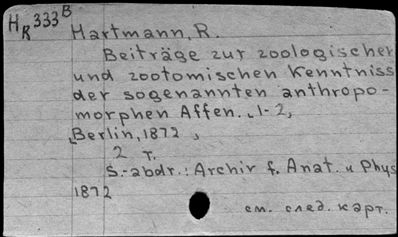 HR 333B
Hartmann, R.
Beiträge zur zoologischen
und zootomischen Kenntniss
der sogenannten anthropo-
morphen Affen. 1-2,
Berlin, 1872,
2 т.
S.-abdr.: Archiv f. Anat. u Phys
1872
см. след. карт.